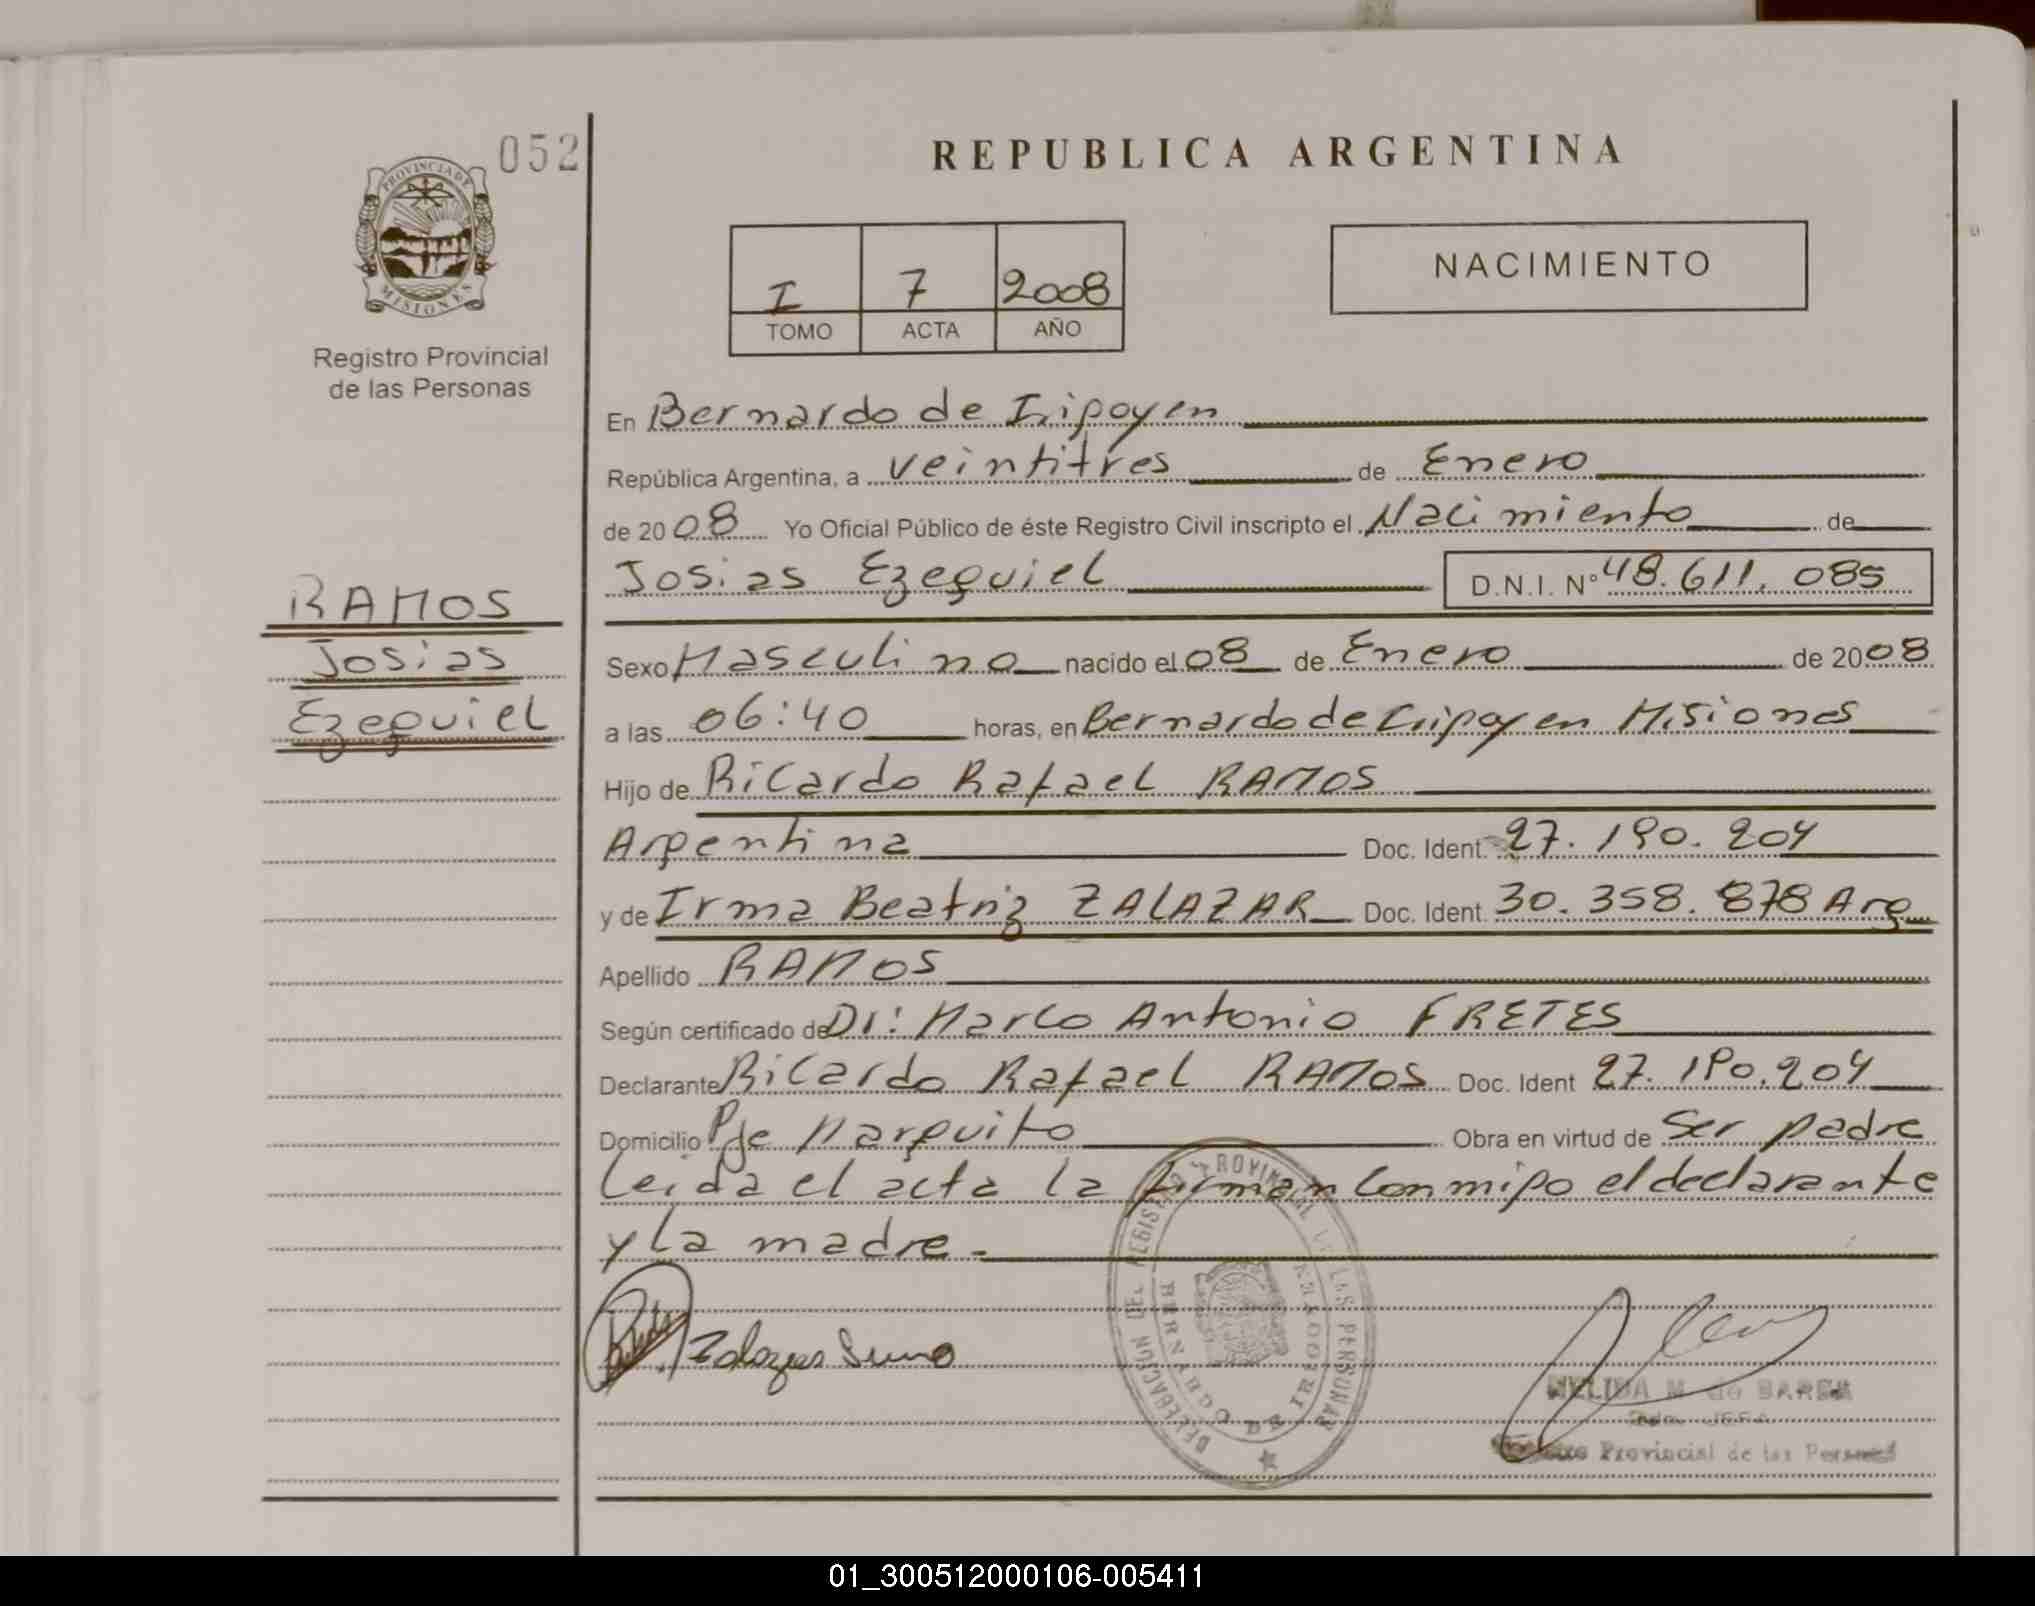 052
REPUBLICA ARGENTINA
PROVINCIA DE
MISIONES
Registro Provincial
de las Personas
I 7 2008
TOMO ACTA AÑO
NACIMIENTO
En Bernardo de Irigoyen
República Argentina, a veintitres de Enero
de 2008 Yo Oficial Público de éste Registro Civil inscripto el Nacimiento de
Josias Ezequiel D.N.I. Nº 48.611.085
RAMOS
Josias
Ezequiel
Sexo Masculino nacido el 08 de Enero de 2008
a las 06:40 horas, en Bernardo de Irigoyen Misiones
Hijo de Ricardo Rafael RAMOS
Argentina Doc. Ident. 27.190.204
y de Irma Beatriz ZALAZAR Doc. Ident. 30.358.878 Arg
Apellido RAMOS
Según certificado de Dr: Marco Antonio FRETES
Declarante Ricardo Rafael RAMOS Doc. Ident 27.190.204
Domicilio Pje Marquito Obra en virtud de Ser padre
Leida el acta la firman Conmigo el declarante
y la madre.-
DELEGACION DEL REGISTRO PROVINCIAL DE LAS PERSONAS
BERNARDO DE IRIGOYEN
M. de BAREA
JEFA
Provincial de las Personas
01_300512000106-005411